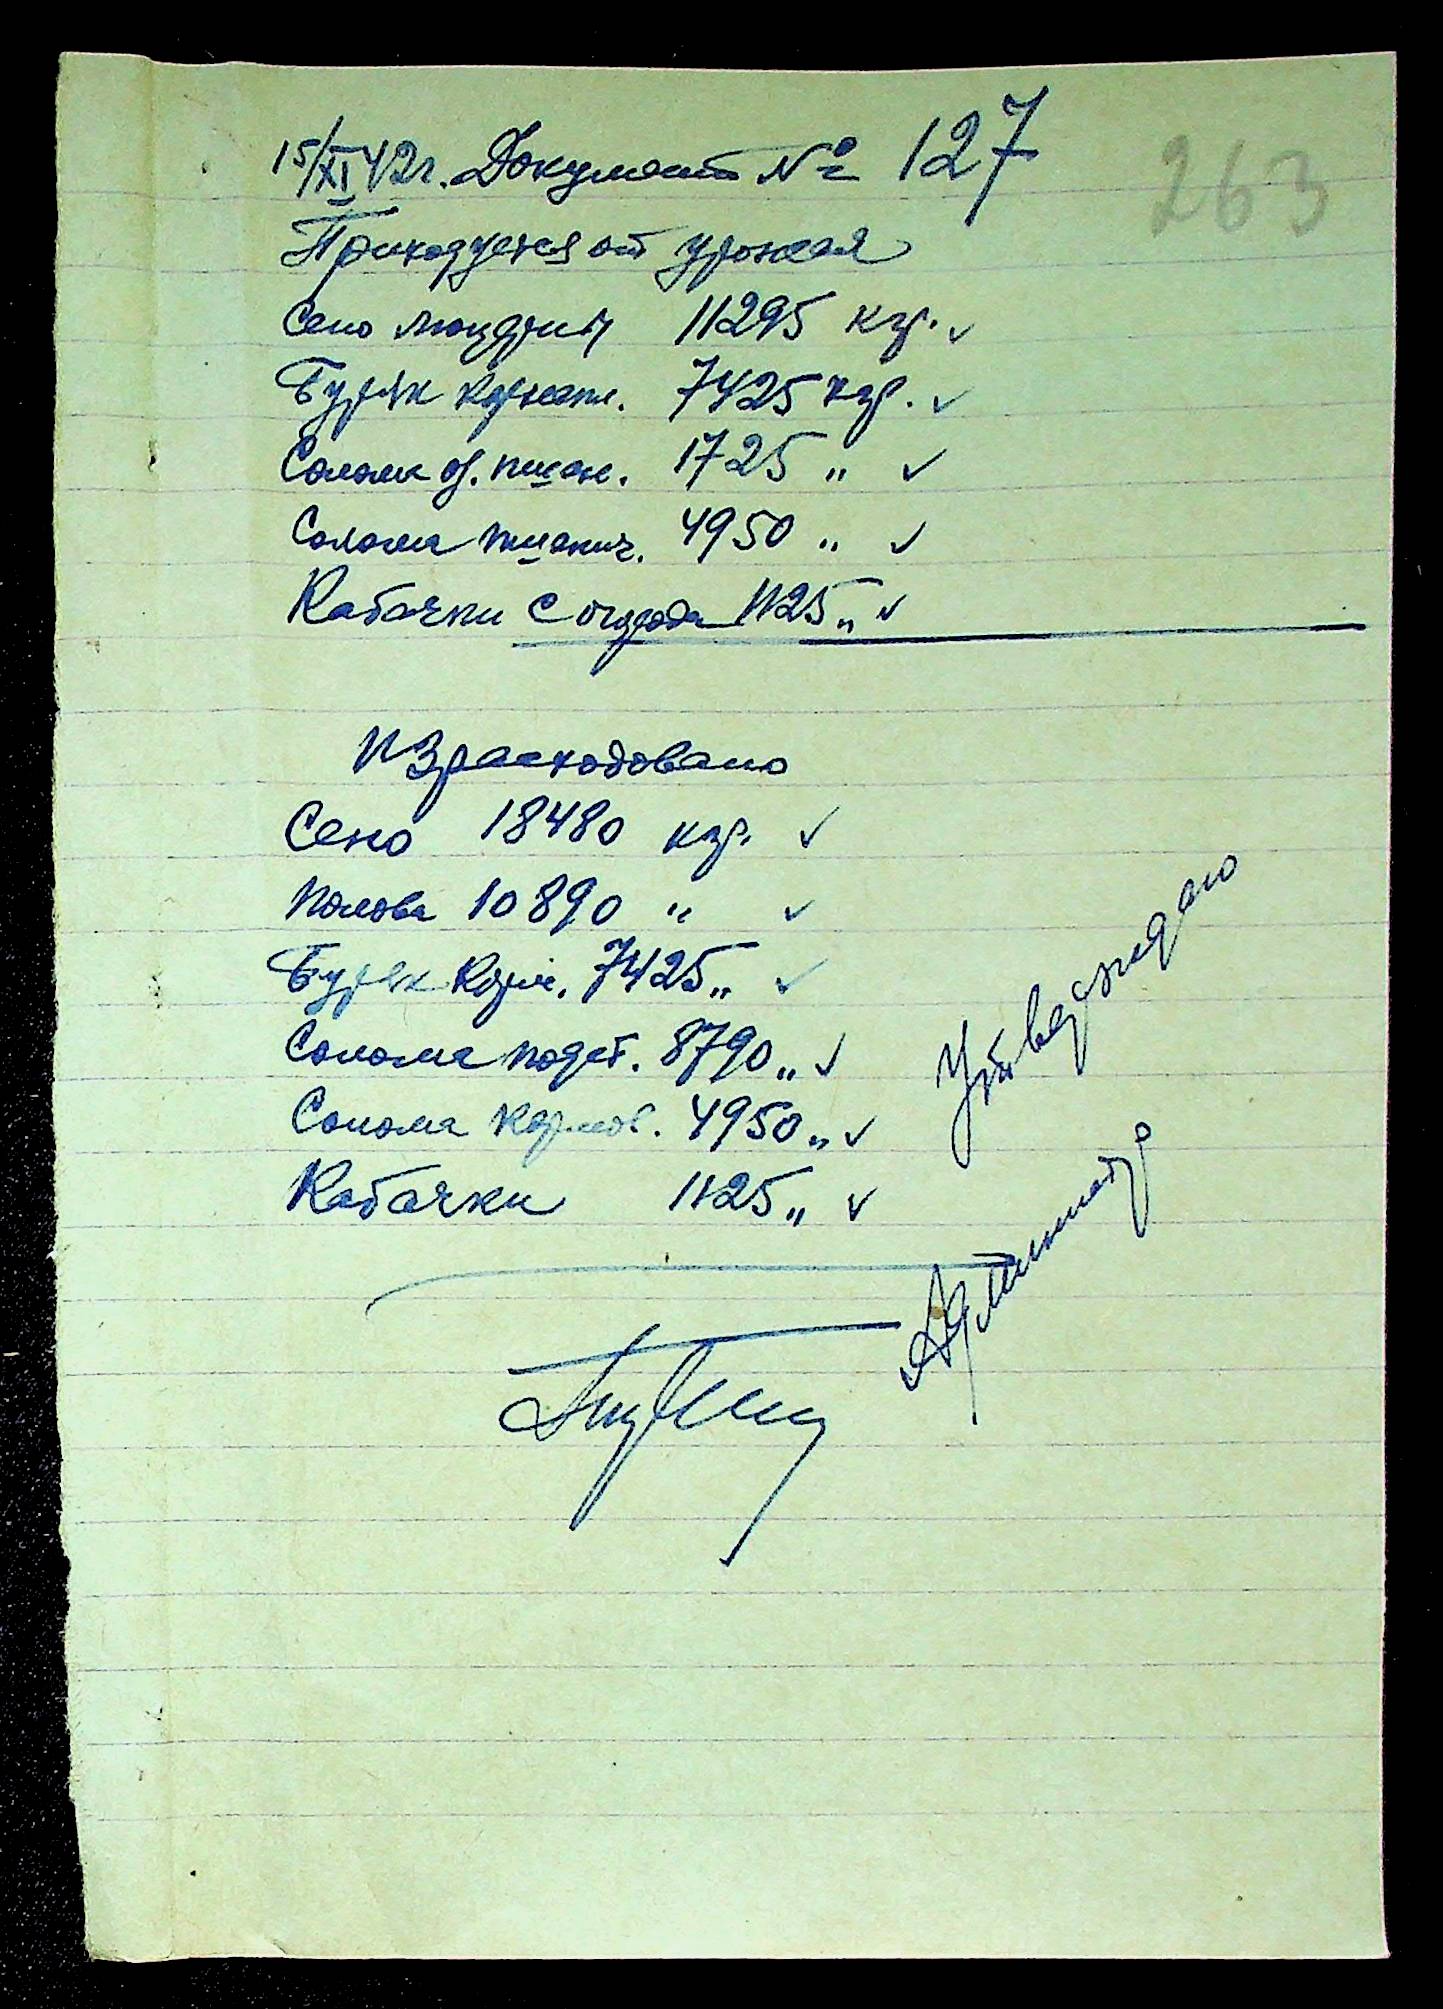 15/XI 42г. Документ № 127
263
Приходуется от урожая
Сено люцерны 11295 кгр.
Буряк 7425 кгр.
Солома оз. пшен. 1725 "
Солома пшенич. 4950 "
Кабачки с огорода 1125 "
Израсходовано
Сено 18480 кгр.
Полова 10890 "
Буряк корм. 7425 "
Солома подст. 8790 "
Солома кормов. 4950 "
Кабачки 1125 "
Утверждаю